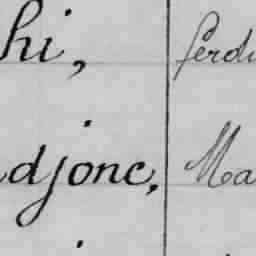 hi, ferdi
djonc, Ma